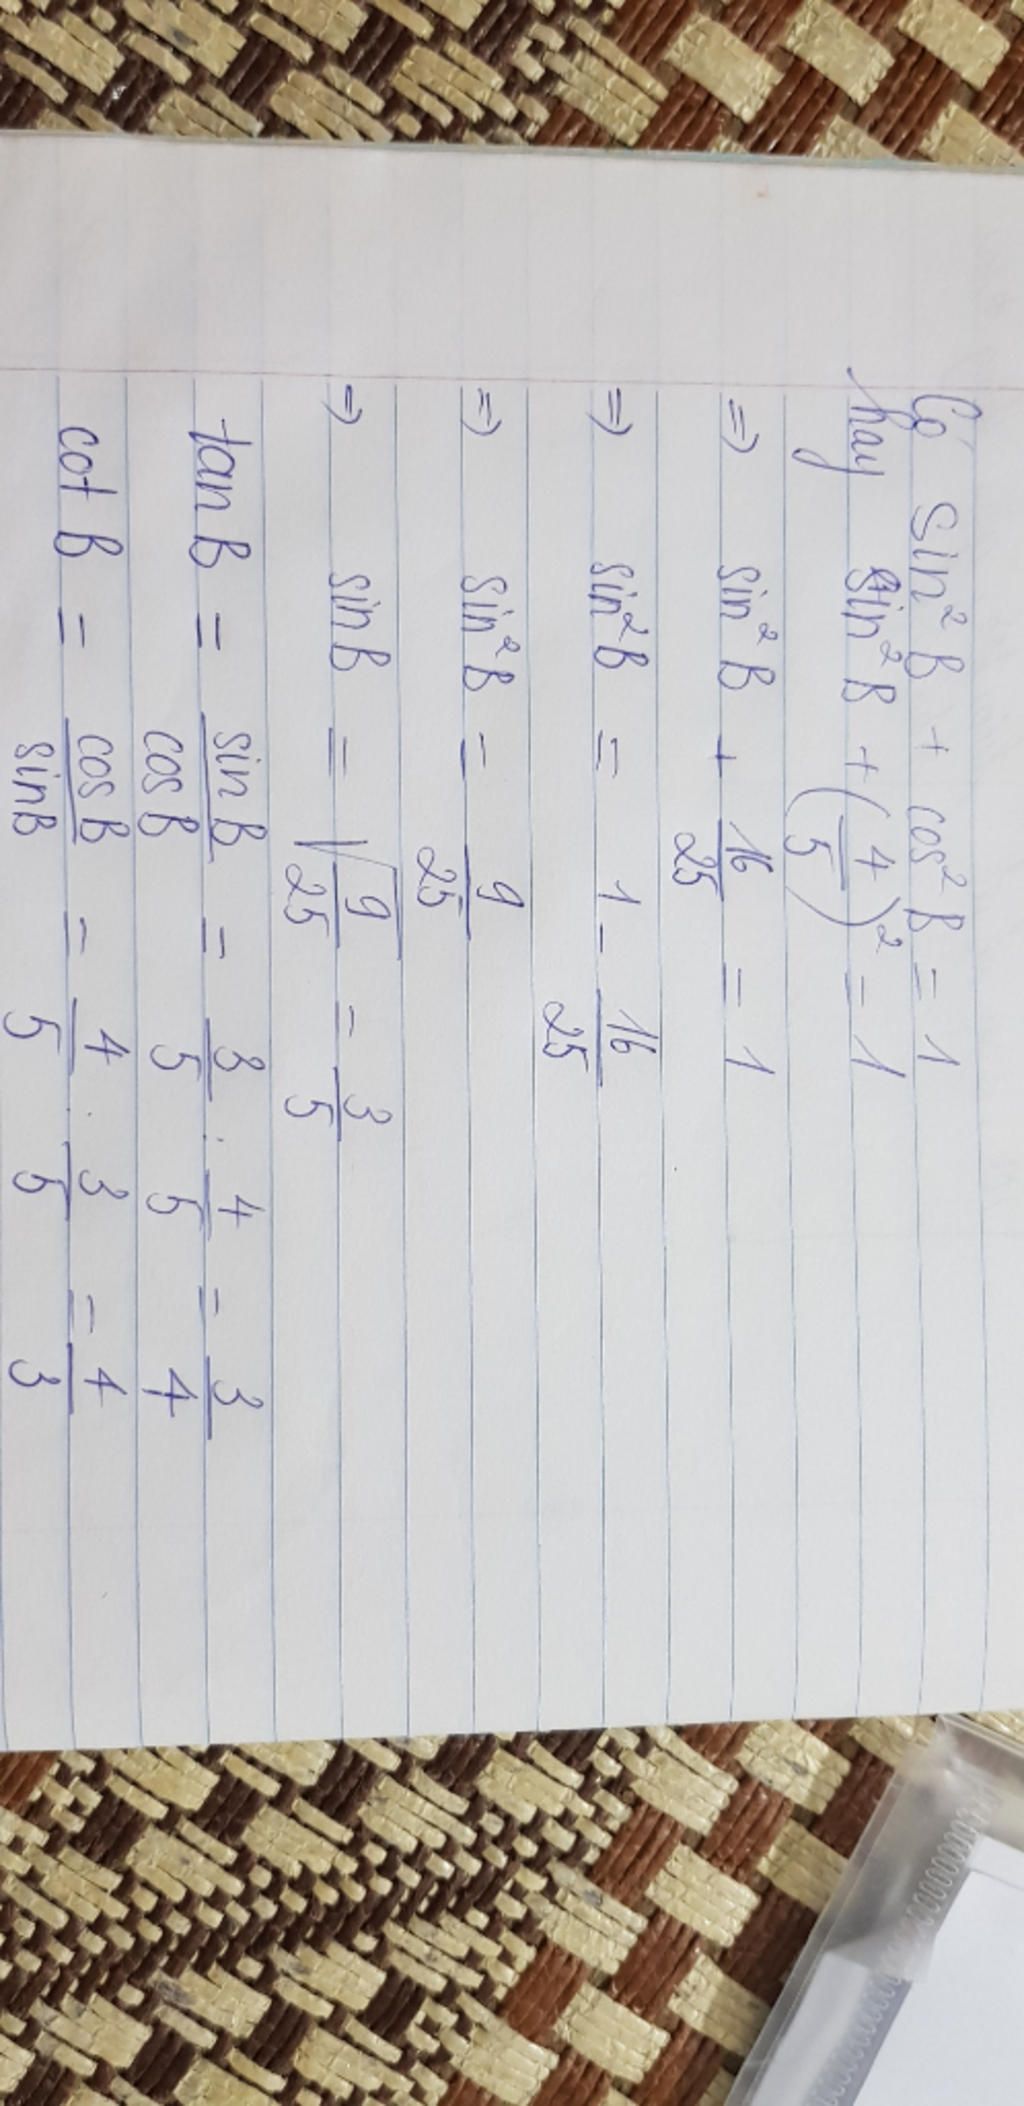 Có sin²B + cos²B = 1
hay sin²B + (4/5)² = 1
=> sin²B + 16/25 = 1
=> sin²B = 1 - 16/25
=> sin²B = 9/25
=> sin B = √(9/25) = 3/5
tan B = sin B/cos B = 3/5 : 4/5 = 3/4
cot B = cos B/sin B = 4/5 : 3/5 = 4/3